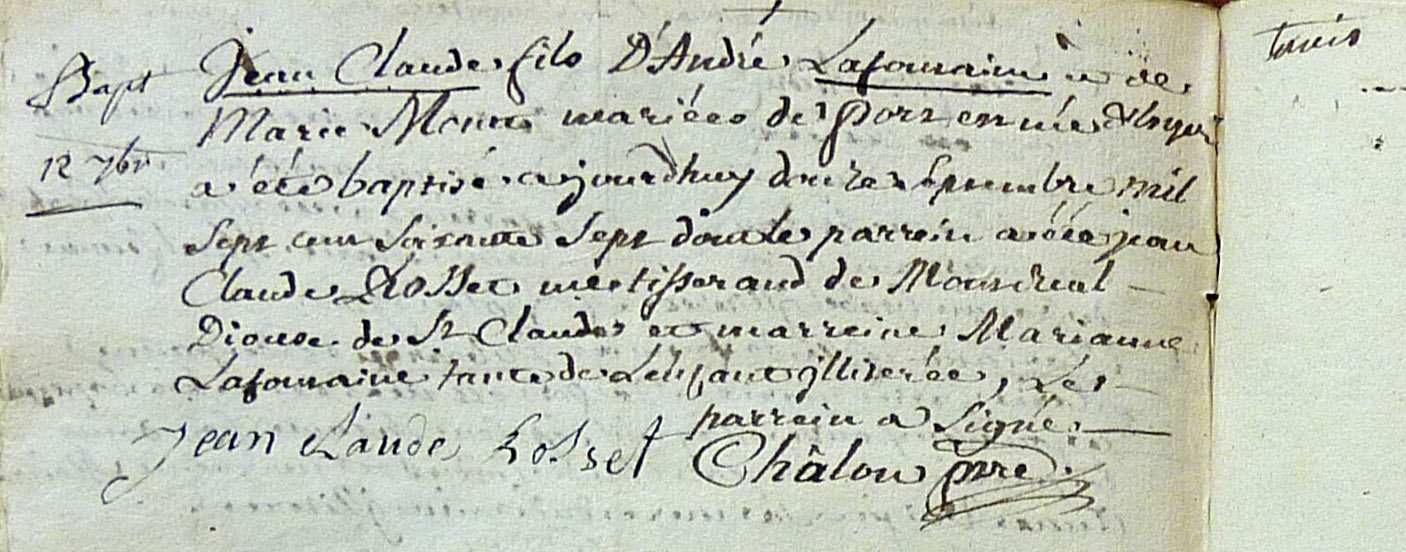 Bapt
12 7bre
Jean Claude fils D'André Lafontaine et de
Marie Monet mariées de Port en né
a été baptisé aujourdhuy douze Septembre mil
Sept cent Soixante Sept dont le parrein a été jean
Claude Rosset me tisserand de Montreal
Diouse de St Claude et marreine Marianne
Lafontaine tante de L'enfant illiterée, Le
parrein a Signé
Jean Claude Rosset Châlon ptre